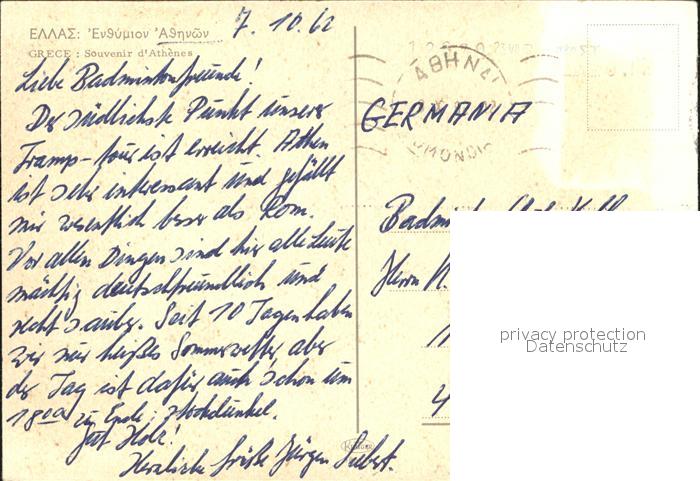 ΕΛΛΑΣ: Ἐνθύμιον Ἀθηνῶν
GRECE : Souvenir d'Athènes
7.10.62
Liebe Badmintonfreunde!
Der südlichste Punkt unserer
Tramp-tour ist erreicht. Athen
ist sehr interessant und gefällt
mir wesentlich besser als Rom.
Vor allen Dingen sind hier alle Leute
mächtig deutschfreundlich und
recht sauber. Seit 10 Tagen haben
wir nur heißes Sommerwetter aber
der Tag ist dafür auch schon um
18 00 zu Ende; stockdunkel.
Gut Holz!
Herzliche Grüße Jürgen Siebert.
ΑΘΗΝΑΙ
GERMANIA
Herrn
privacy protection
Datenschutz